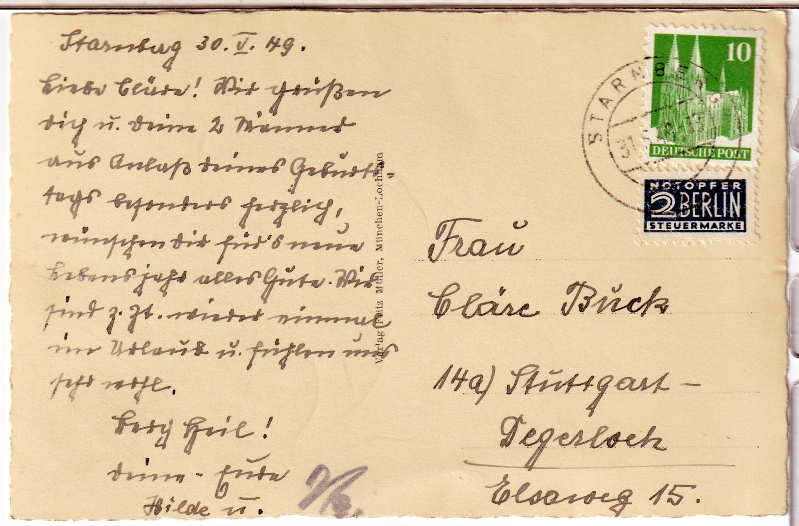 Starnberg 30. V. 49.
Liebe Cläre! Wir grüßen
dich u. deine 2 Männer
aus Anlaß deines Geburts-
tags besonders herzlich,
wünschen dir für's neue
Lebensjahr alles Gute. Wir
sind z. Zt. wieder einmal
im Urlaub u. fühlen uns
sehr wohl.
Berg Heil!
Deine
Hilde u.
Verlag Fritz Müller, München-Lochham
STARNBERG
10
DEUTSCHE POST
NOTOPFER
2 BERLIN
STEUERMARKE
Frau
Cläre Buck
14a) Stuttgart-
Degerloch
Elsaweg 15.